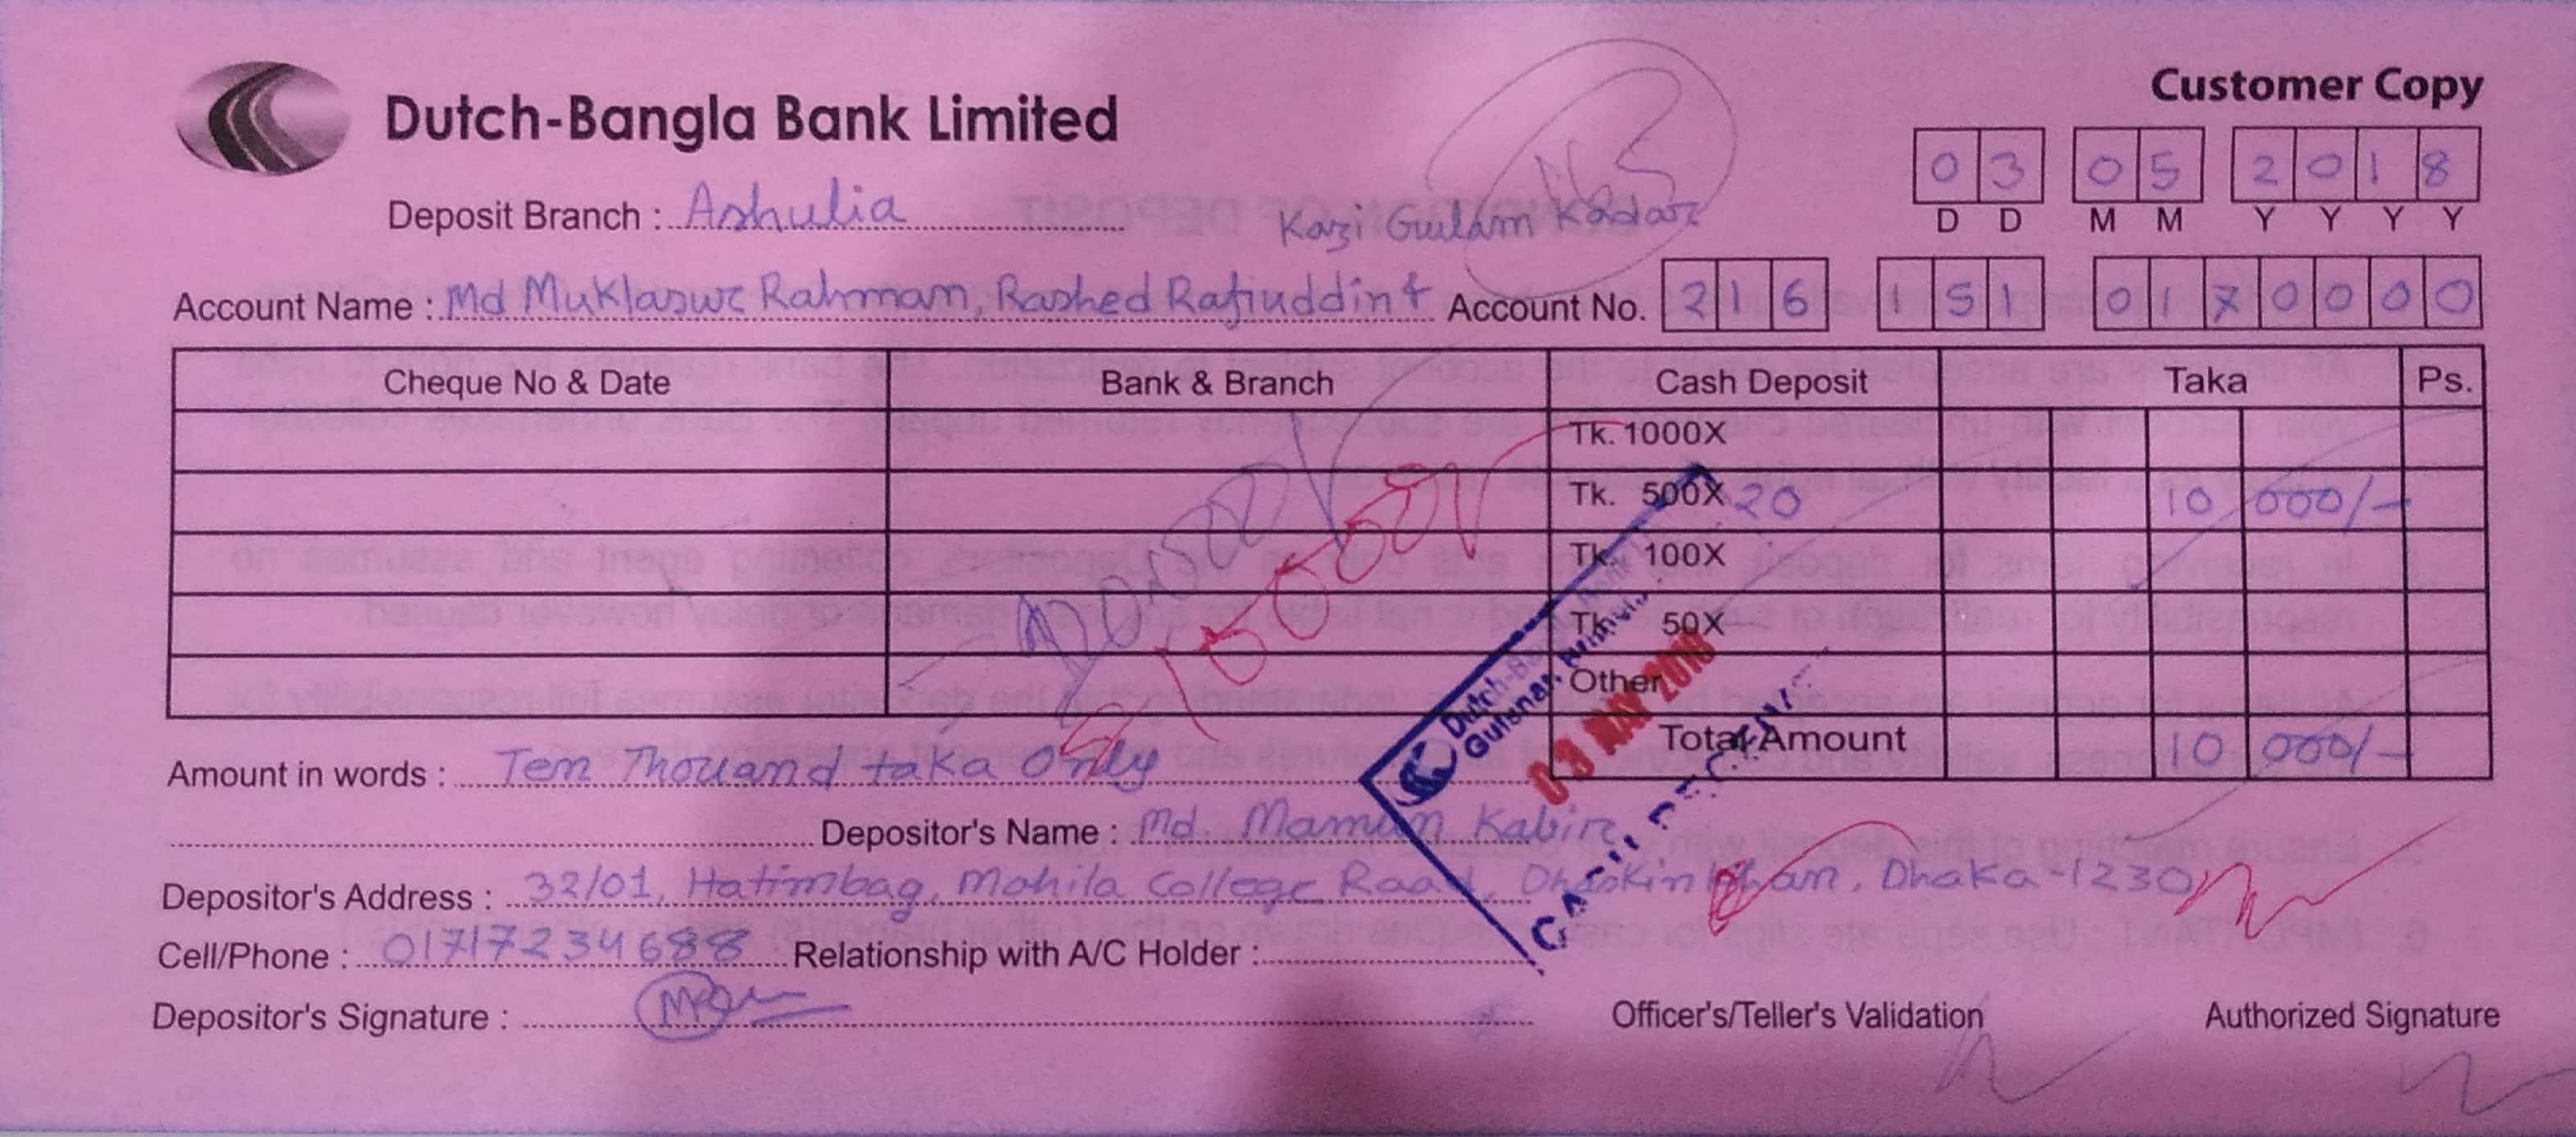 Customer Copy
Dutch-Bangla Bank Limited
03 05 2018
D D M M Y Y Y Y
Deposit Branch : Ashulia
Kazi Gulam Kadar
Account Name : Md Muklasur Rahmam, Rashed Rafiuddin & Account No. 216 151 0170000
Cheque No & Date Bank & Branch Cash Deposit Taka Ps.
Tk. 1000X
Tk. 500X 20 10 000/-
Tk. 100X
Tk. 50X
Other
Total Amount 10 000/-
03 MAY 2018
CASH RECEIVE
Amount in words : Ten Thouand taka Only
Depositor's Name : Md. Mamun Kabir
Depositor's Address : 32/01, Hatimbag, Mohila College Road, Dhaka-1230
Cell/Phone : 01717234688 Relationship with A/C Holder :
Depositor's Signature :
Officer's/Teller's Validation Authorized Signature